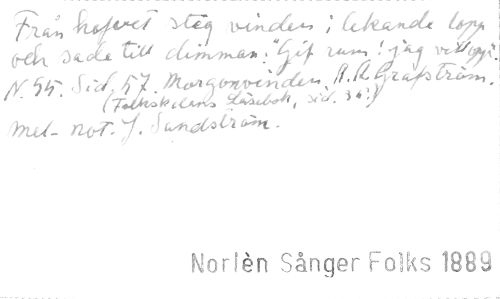 Från hafvet steg vinden i lekande lopp
och sade till dimman: "Gif rum! jag vill opp".
N. 55. Sid. 57. Morgonvinden. A. A. Grafström.
(Folkskolans Läsebok, sid. 36?)
Mel- not. J. Sandström.
Norlèn Sånger Folks 1889